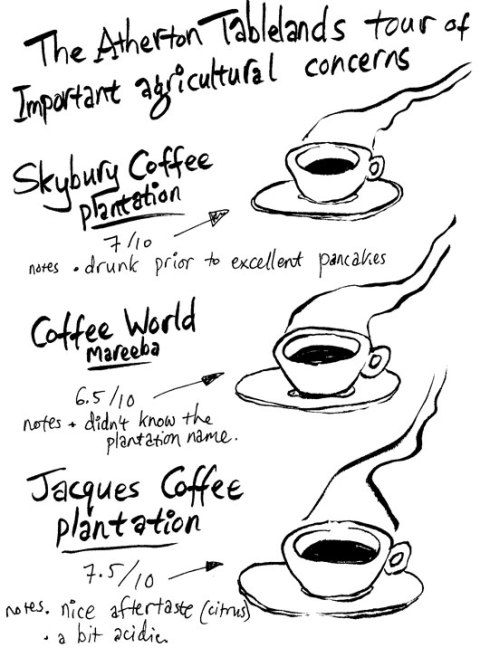 The Atherton Tablelands tour of
Important agricultural concerns
Skybury Coffee
plantation
7/10
notes • drunk prior to excellent pancakes
Coffee World
Mareeba
6.5/10
notes • didn't know the
plantation name.
Jacques Coffee
plantation
7.5/10
notes. nice aftertaste (citrus)
• a bit acidic